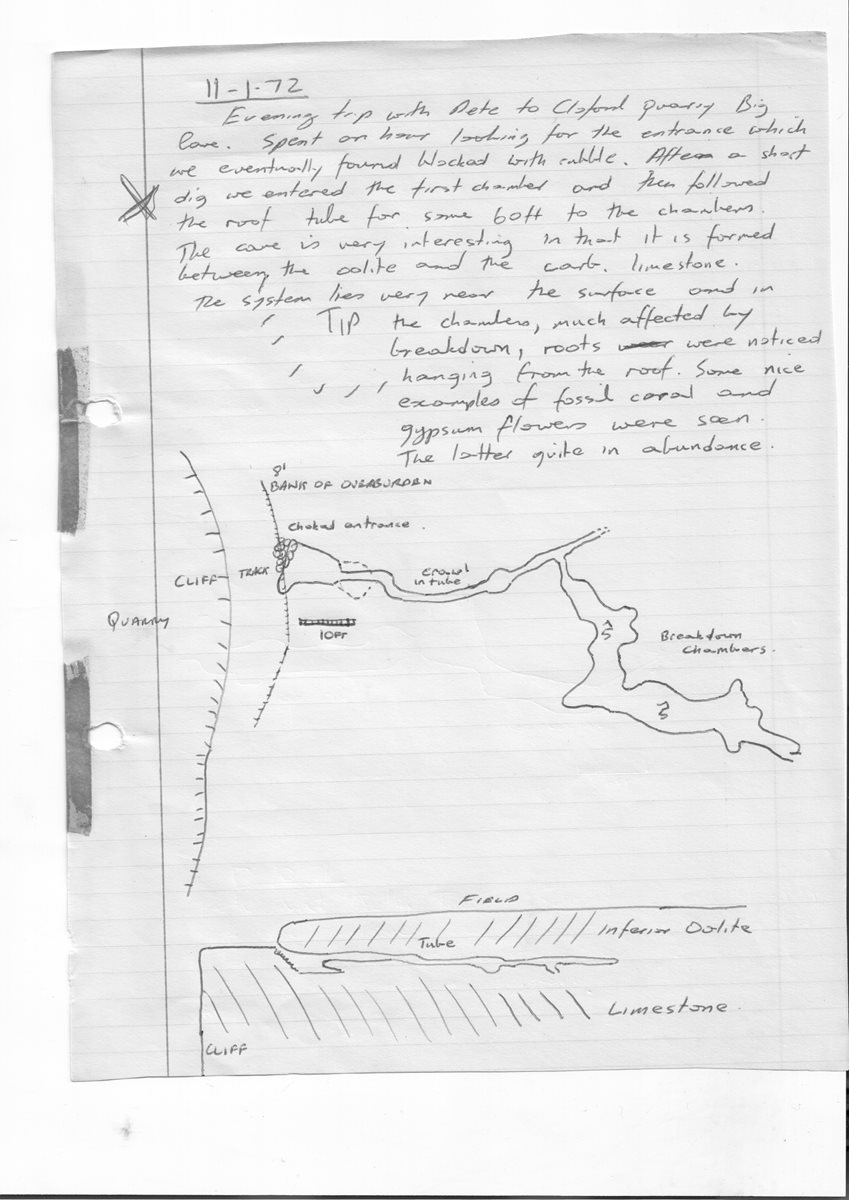 11-1-72
Evening trip with Pete to Cloford Quarry Big
Cave. Spent an hour looking for the entrance which
we eventually found blocked with rubble. After a short
dig we entered the first chamber and then followed
the roof tube for some 60ft to the chambers.
The cave is very interesting in that it is formed
between the oolite and the carb. limestone.
The system lies very near the surface and in
TIP the chambers, much affected by
breakdown, roots were noticed
hanging from the roof. Some nice
examples of fossil coral and
gypsum flowers were seen.
The latter quite in abundance.
8'
BANK OF OVERBURDEN
Choked entrance.
CLIFF
TRACK
Crawl
in tube
QUARRY
10FT
5
Breakdown
Chambers.
3
FIELD
Tube
Inferior Oolite
Limestone
CLIFF